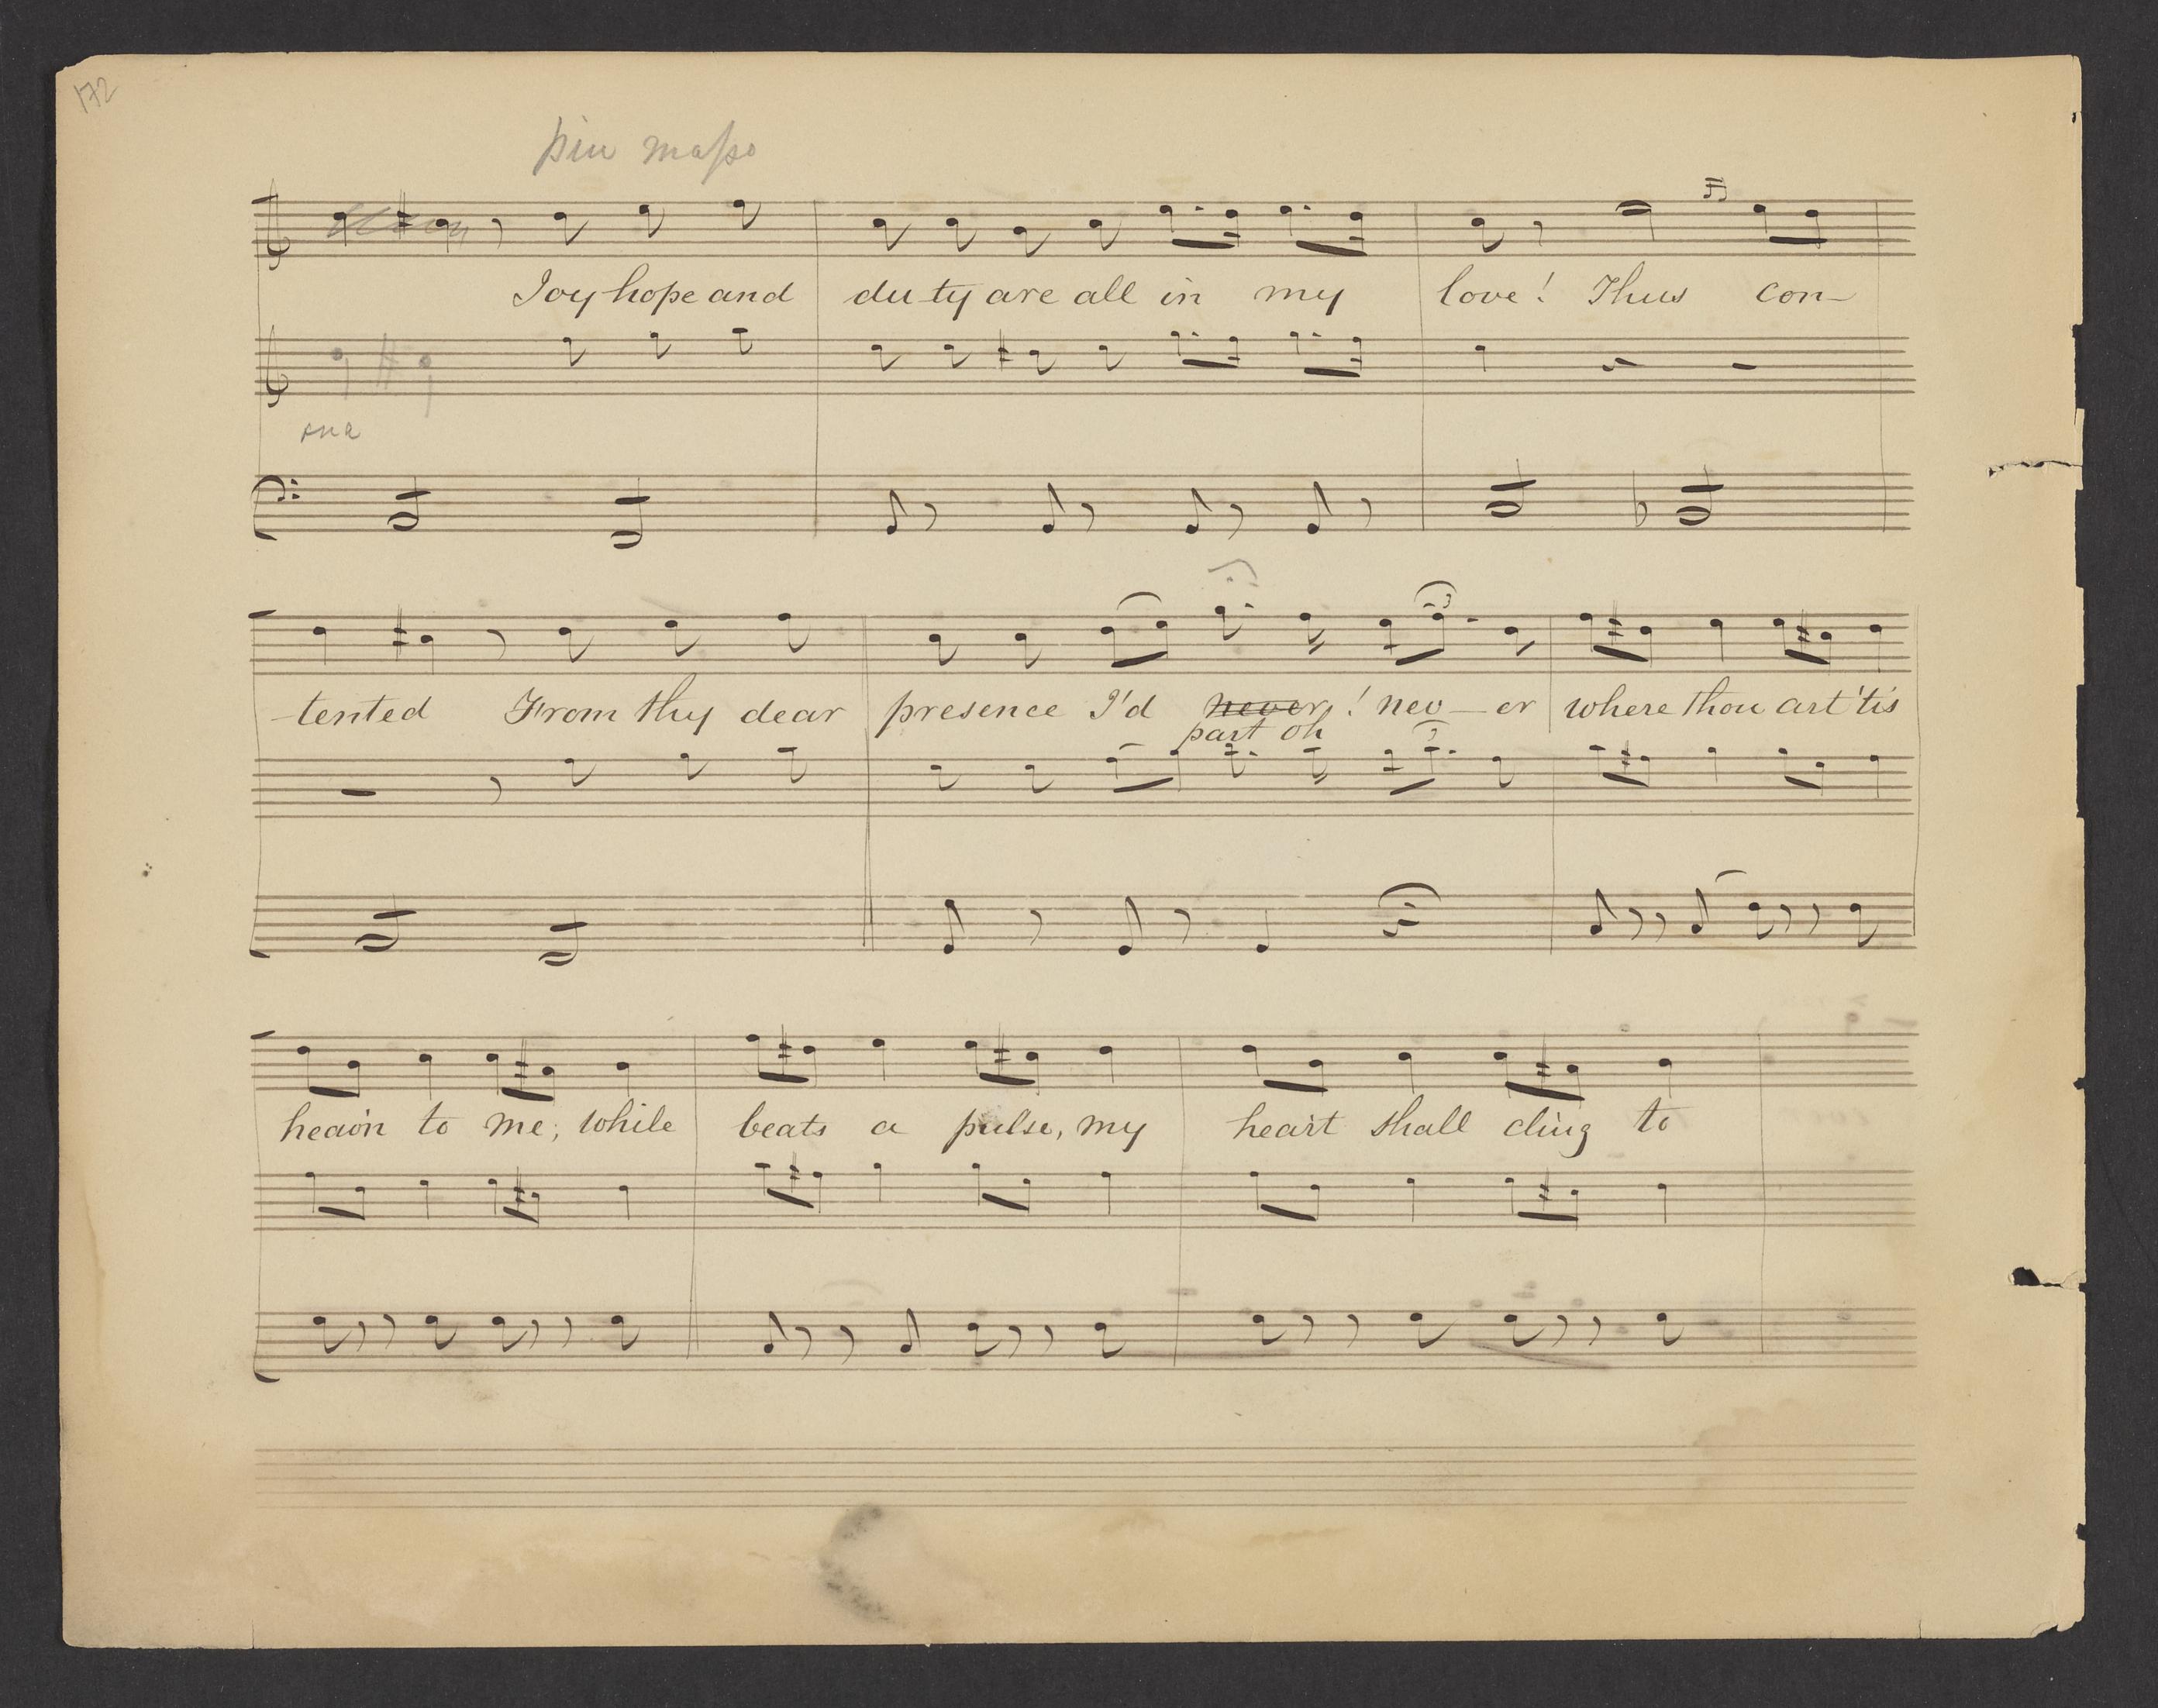 172
piu mosso
Joy hope and du ty are all in my love! Thus con-
-tented From thy dear presence I'd never! nev-er where thou art 'tis
part oh
heav'n to me, while beats a pulse, my heart shall cling to